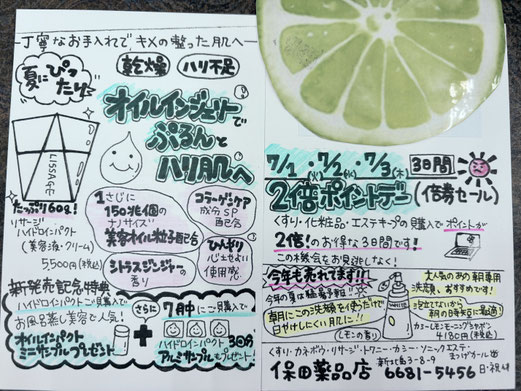 丁寧なお手入れでキメの整った肌へ
夏にぴったり
乾燥
ハリ不足
オイルインジェリーで
ぷるんと
ハリ肌へ
LISSAGE
たっぷり60g!
リサージ
ハイドロインパクト
(美容液・クリーム)
5,500円(税込)
1さじに
150兆個の
ナノサイズ
美容オイル粒子配合
コラーゲンケア
成分SP
配合
ひんやり
心ときめく
使用感
シトラスジンジャー
の香り
新発売記念特典
ハイドロインパクトご購入で
お風呂蒸し美容で人気!
オイルインパクト
ミニサンプルプレゼント
さらに
7月中にご購入で
ハイドロインパクト3回分
アルミサンプルもプレゼント!
7/1(火)・7/2(水)・7/3(木) 3日間
2倍ポイントデー(倍券セール)
くすり・化粧品・エステキープの購入でポイントが
2倍!のお得な3日間です!
この機会をお見逃しなく!
今年も売れてます!!
今年の夏は猛暑予報!!
朝用にこの洗顔を使うだけで
日やけしにくい肌に!!
(レモンの香り)
大人気のあの朝専用
洗顔、おすすめです!
泡立てなしだから
朝の時短に最適!
カミーレモンモーニングシャボン
4180円(税込)
くすり・カネボウ・リサージ・トワニー・カミー・ソニックエステ・
保田薬品店
新北島3-8-9
6681-5456
日・祝休